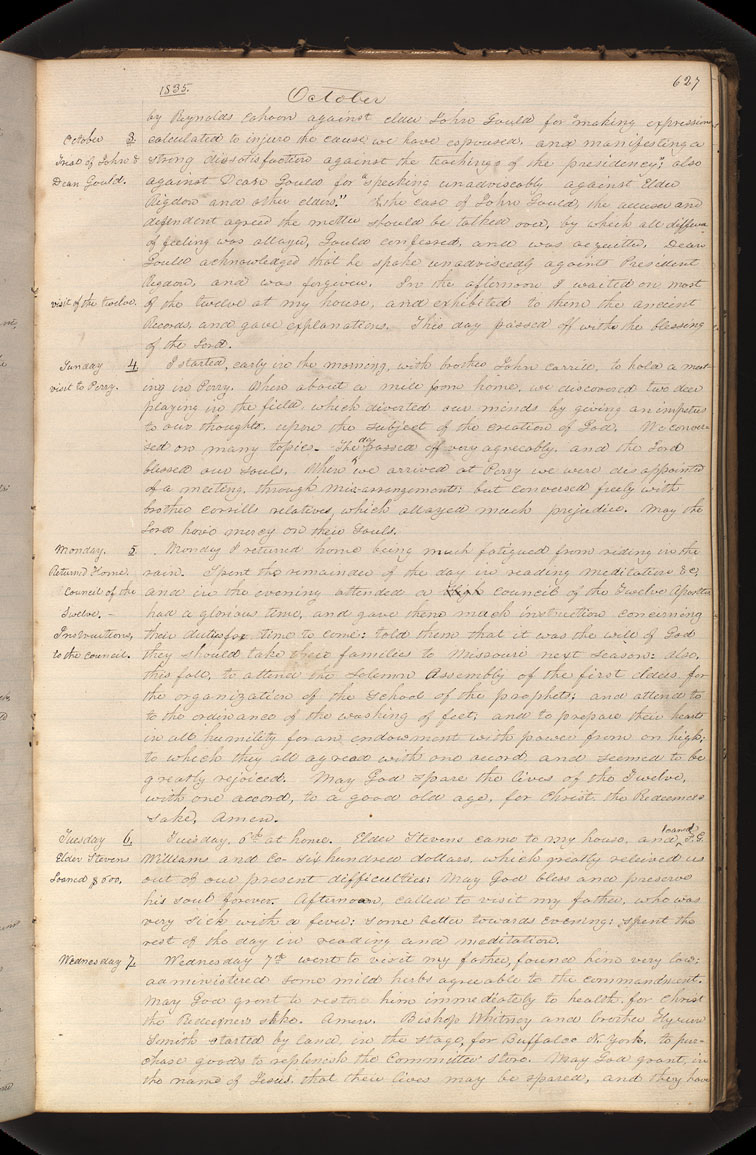 1835.
October
627
by Reynolds Cahoon against elder John Gould for "making expressions
October 3
calculated to injure the cause we have espoused, and manifesting a
Trial of John &
strong dissatisfaction against the teachings of the presidency"; also
Dean Gould.
against Dean Gould for "speaking unadviseably against Elder
Rigdon and other elders." The case of John Gould, the accuser and
defendent agreed the matter should be talked over, by which all
of feeling was allayed, Gould confessed, and was Dean
Gould acknowledged that he spake unadvisedly against President
Rigdon, and was forgiven. In the afternoon I waited on most
visit of the twelve.
of the twelve at my house, and exhibited to them the ancient
Records, and gave explanations. This day passed off with the blessing
of the Lord.
Sunday 4
I started, early in the morning, with brother John Corrill, to hold a meet-
visit to Perry.
ing in Perry. When about a mile from home, we discovered two deer
playing in the field, which diverted our minds by giving an impetus
to our thoughts, upon the subject of the creation of God. We conver-
sed on many topics. The day passed off very agreeably, and the Lord
blessed our souls. When we arrived at Perry we were disappointed
of a meeting, through misarrangement: but conversed freely with
brother corrills relatives, which allayed much prejudice. May the
Lord have mercy on their Souls.
Monday. 5
Monday I returned home being much fatigued from riding in the
Return'd Home.
rain. Spent the remainder of the day in reading meditation &c;
Council of the
and in the evening attended a High council of the Twelve Apostles
Twelve, -
had a glorious time, and gave them much instruction concerning
Instructions,
their duties for time to come: told them that it was the will of God
to the council.
they should take their families to Missouri next season: also,
this fall, to attend the solemn Assembly of the first elders, for
the organization of the School of the prophets; and attend to
to the ordinance of the washing of feet; and to prepare their hearts
in all humility for an endowment with power from on high;
to which they all agreed with one accord, and seemed to be
greatly rejoiced. May God spare the lives of the Twelve,
with one accord, to a good old age, for Christ the Redeemers
sake, Amen.
Tuesday 6.
Tuesday, 6th at home. Elder Stevens came to my house, and loaned F. G.
Elder Stevens
Williams and Co six hundred dollars, which greatly relieved us
Loaned $600.
out of our present difficulties: May God bless and preserve
his soul forever. Afternoon, called to visit my father, who was
very sick with a fever: some better towards evening: spent the
rest of the day in reading and meditation.
Wednesday 7.
Wednesday 7th went to visit my father, found him very low:
administered some mild herbs agreeable to the commandment.
May God grant to restore him immediately to health for Christ
the Redeemers sake. Amen. Bishop Whitney and brother Hyrum
Smith started by land, in the stage, for Buffalo N. York, to pur-
chase goods to replenish the Committee Store. May God grant, in
the name of Jesus, that their lives may be spared, and they have